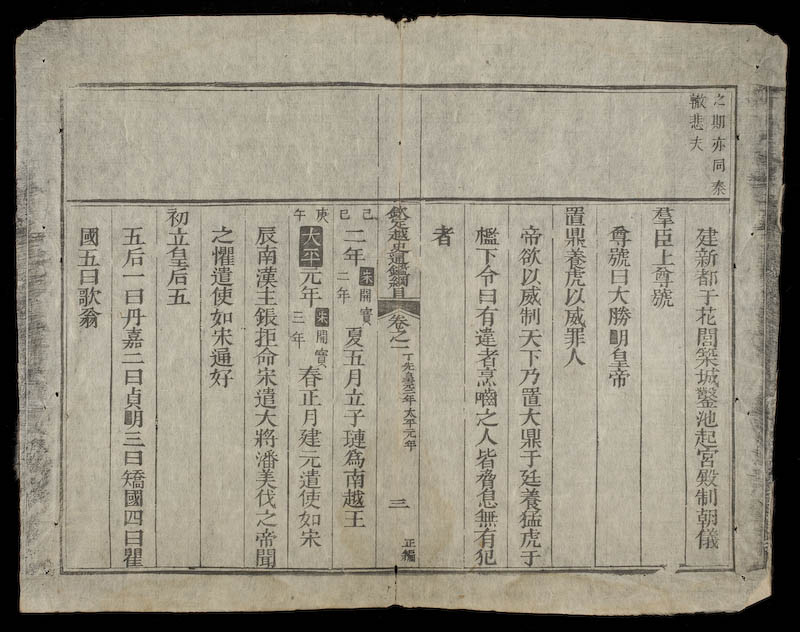 之期亦同秦
轍悲夫
建新都于花閭築城鑿池起宮殿制朝儀
羣臣上尊號
尊號曰大勝明皇帝
置鼎養虎以威罪人
帝欲以威制天下乃置大鼎于廷養猛虎于
檻下令曰有違者烹嚙之人皆脅息無有犯
者
欽定越史通鑑綱目 卷之一 丁先皇二年太平元年 三 正編
己巳 二年 宋開寶二年 夏五月立子璉爲南越王
庚午 太平元年 宋開寶三年 春正月建元遣使如宋
辰南漢主鋹拒命宋遣大將潘美伐之帝聞
之懼遣使如宋通好
初立皇后五
五后一曰丹嘉二曰貞明三曰矯國四曰瞿
國五曰歌翁